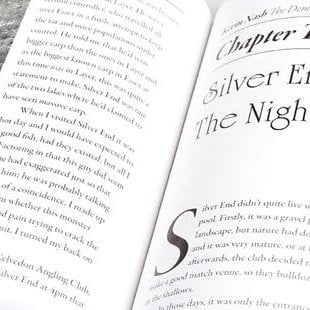 controller, who travelled all
over Essex in a little van to keep
the rat and mice populations under
control. He told me that he'd seen
bigger carp than the ones in Layer and
as the biggest known carp in Essex at
this time was in Layer, this was quite a
statement to make. Silver End was one
of the two lakes where he'd claimed to
have seen massive carp.
When I visited Silver End it was
hot day and I would have expected to
good fish, had they existed, but all I
Factoring in that this guy did seem
he had exaggerated just so that
him: he was probably talking
of a coincidence. I made up
in whether this monster
d pain trying to crack the
it, I turned my back on
Kelvedon Angling Club,
Silver End at 4pm that
Keith Nash The Dem
Chapter T
Silver En
The Nigh
Silver End didn't quite live u
pool. Firstly, it was a gravel p
landscape, but nature had do
and it was very mature, or at
afterwards, the club decided t
make a good match venue, so they bulldoz
in the shallows.
In those days, it was only the entrance